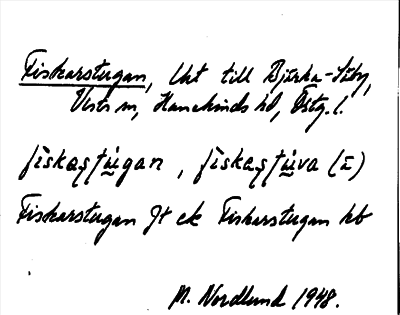 Fiskarstugan, Lht till Björka-Säby,
Vists sn, Hanekinds hd, Östg. l.
fiskaṣṭu̇gan, fiskaṣṭu̇va (ī)
Fiskarstugan Jt ek Fiskarstugan hb
M. Nordlund 1948.